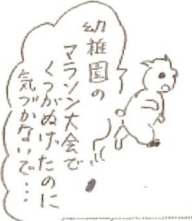 幼稚園の
マラソン大会で
くつがぬげたのに
気づかないで…